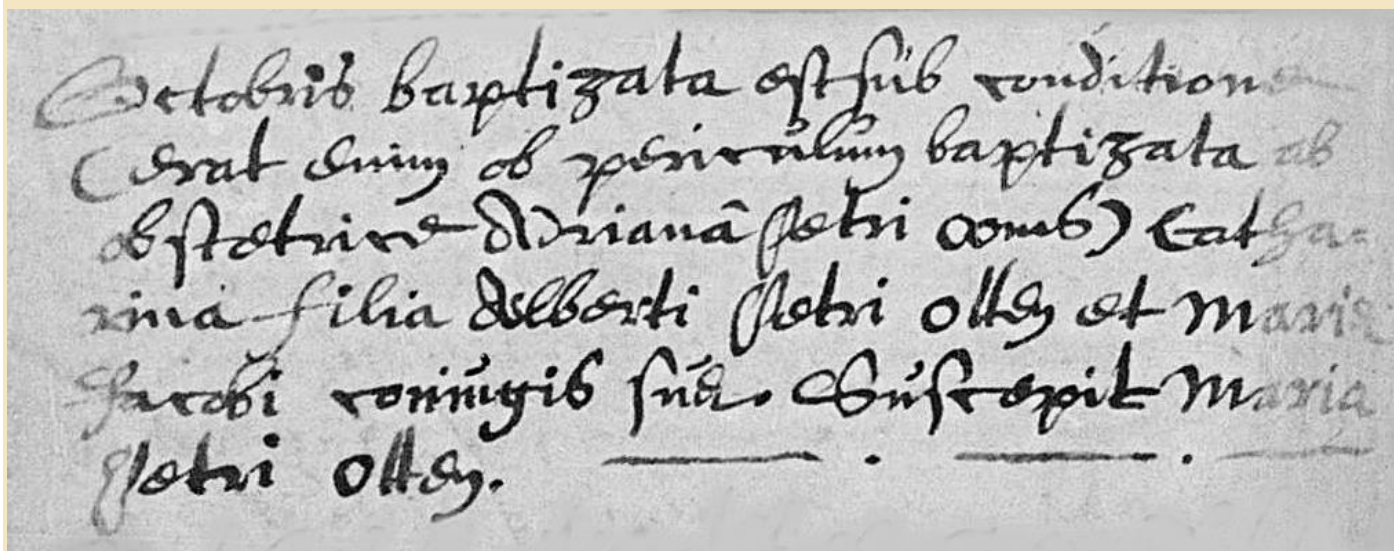 Octobris baptizata est sub conditione
(erat enim ob periculum baptizata ab
obstetrice Adrianâ Petri ooms) Catha=
rina filia Adlberti Petri Olten et Maria
Jacobi coniugis suæ. Suscepit Maria
Petri Olten.